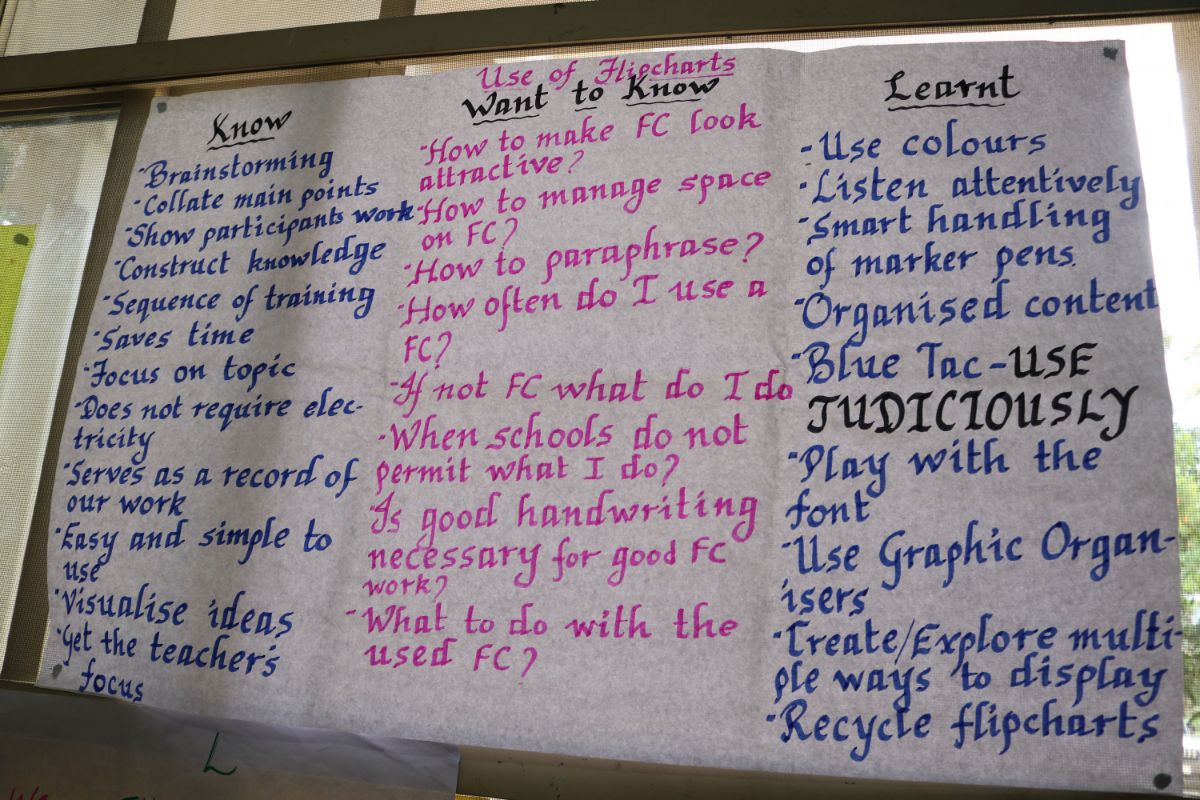 Use of Flipcharts
Know
-Brainstorming
-Collate main points
-Show participants work
-Construct knowledge
-Sequence of training
-Saves time
-Focus on topic
-Does not require elec-
tricity
-Serves as a record of
our work
-Easy and simple to
use
-Visualise ideas
-Get the teacher's
focus
Want to Know
-How to make FC look
attractive?
-How to manage space
on FC?
-How to paraphrase?
-How often do I use a
FC?
-If not FC what do I do
-When schools do not
permit what I do?
-Is good handwriting
necessary for good FC
work?
-What to do with the
used FC?
Learnt
-Use colours
-Listen attentively
-Smart handling
of marker pens.
-Organised content
-Blue Tac-USE
JUDICIOUSLY
-Play with the
font
-Use Graphic Organ-
isers
-Create/Explore multi-
ple ways to display
-Recycle flipcharts
L